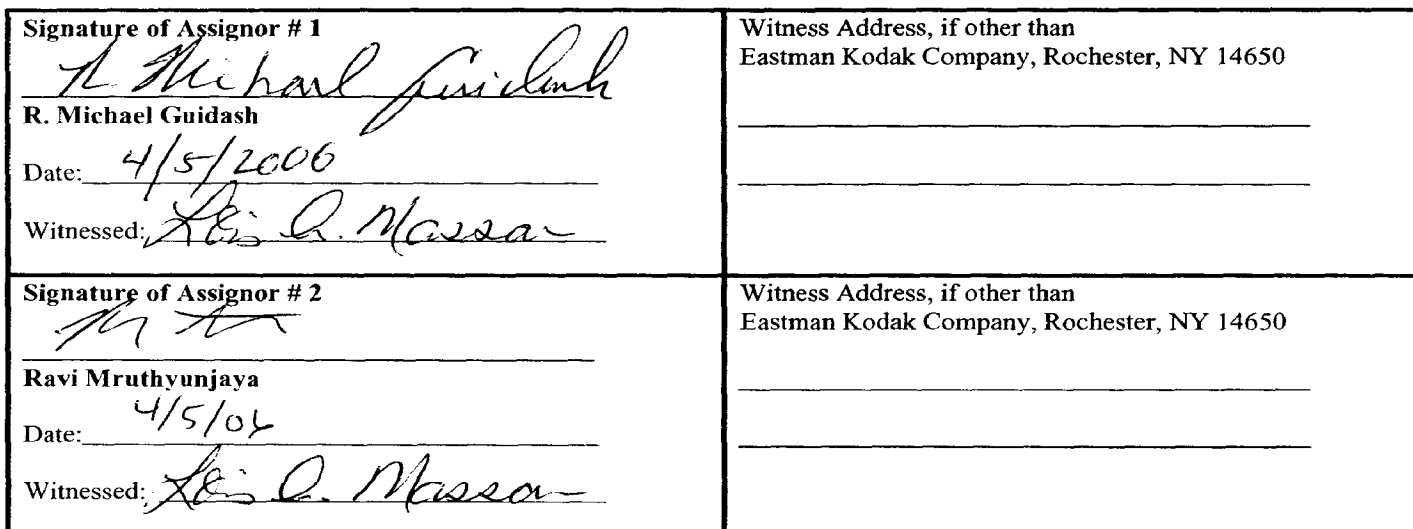 Signature of Assignor # 1
R Michael Guidash
R. Michael Guidash
Date: 4/5/2006
Witnessed: Lois A. Massar
Witness Address, if other than
Eastman Kodak Company, Rochester, NY 14650
Signature of Assignor # 2
Ravi Mruthyunjaya
Date: 4/5/06
Witnessed: Lois A. Massar
Witness Address, if other than
Eastman Kodak Company, Rochester, NY 14650